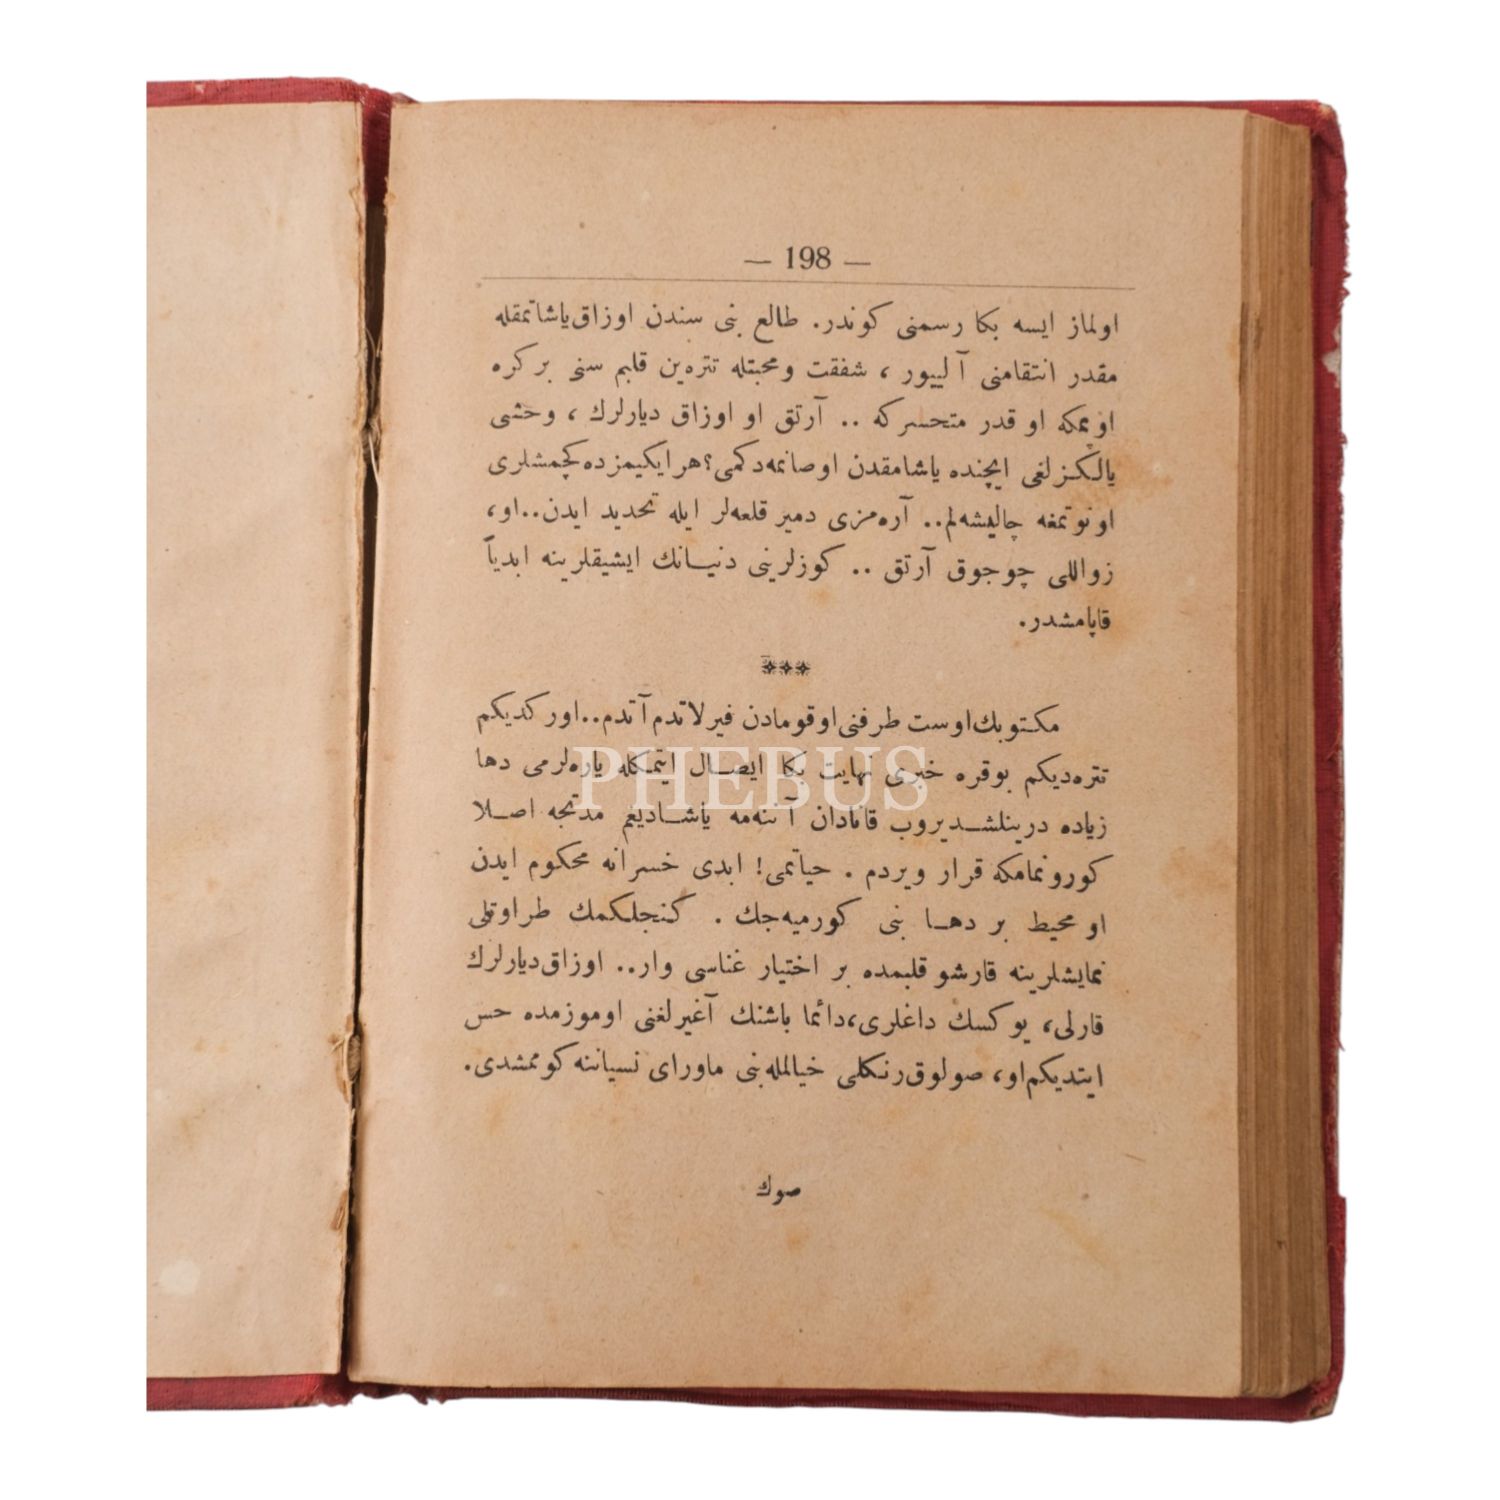 — 198 —
اولماز ایسه بكا رسمنی كوندر. طالع بنی سندن اوزاق یاشاتمقله
مقدر انتقامنی آلییور ، شفقت و محبتله تتره‌ین قلبم سنی بر كره
اوپمكه او قدر متحسر كه .. آرتق او اوزاق دیارلرك ، وحشی
یالكزلغی ایچنده یاشامقدن اوصانمه‌دكمی؟ هر ایكیمزده كچمشلری
اونوتمغه چالیشه‌لم.. آره‌مزی دمیر قلعه‌لر ایله تحدید ایدن..او،
زواللی چوجوق آرتق .. كوزلرینی دنیانك ایشیقلرینه ابدیاً
قاپامشدر.
***
مكتوبك اوست طرفنی اوقومادن فیرلاتدم آتدم..اوركدیكم
تتره‌دیكم بوقره خبری نهایت بكا ایصال ایتمكله یاره‌لرمی دها
زیاده درینلشدیروب قانادان آننه‌مه یاشادیغم مدتجه اصلا
كورونمامكه قرار ویردم . حیاتمی! ابدی خسرانه محكوم ایدن
او محیط بر دها بنی كورمیه‌جك . كنجلكمك طراوتلی
نمایشلرینه قارشو قلبمده بر اختیار غناسی وار.. اوزاق دیارلرك
قارلی، یوكسك داغلری،دائما باشنك آغیرلغنی اوموزمده حس
ایتدیكم او، صولوق رنكلی خیالمله بنی ماورای نسیاننه كوممشدی.
صوك
PHEBUS